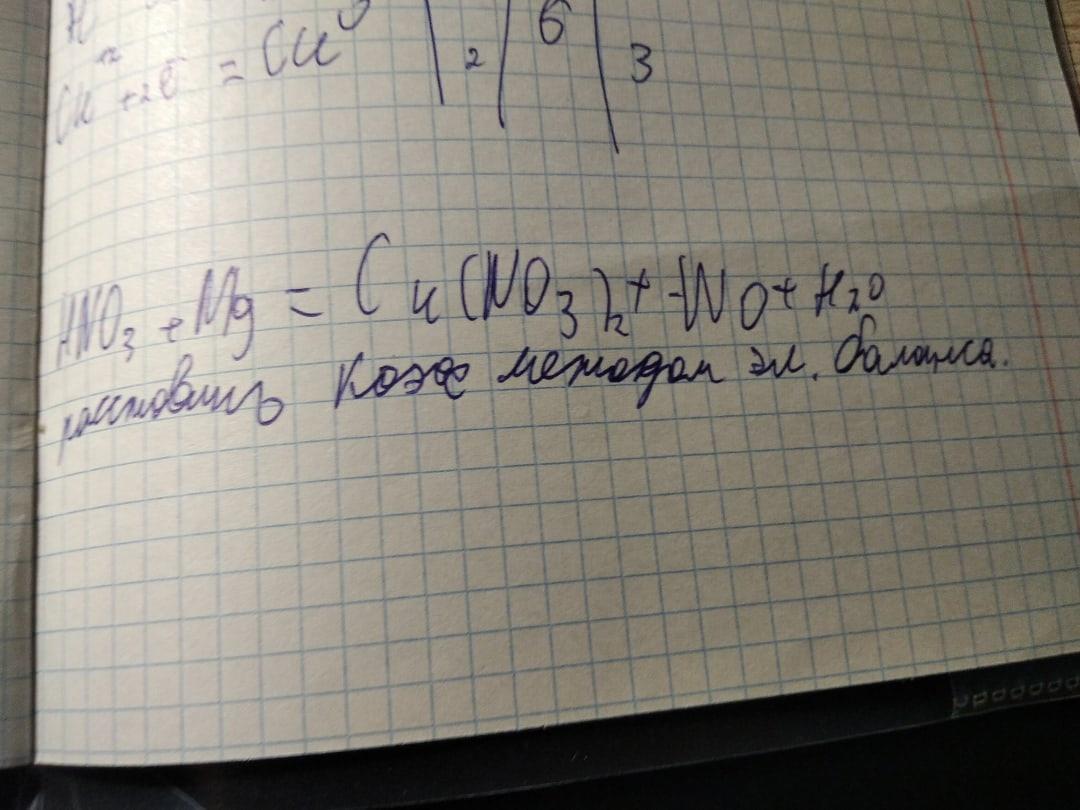 Cu⁺² + 2ē = Cu⁰ | 2 | 6 | 3
HNO₃ + Mg = Cu(NO₃)₂ + NO + H₂O
расставить коэф методом эл. баланса.